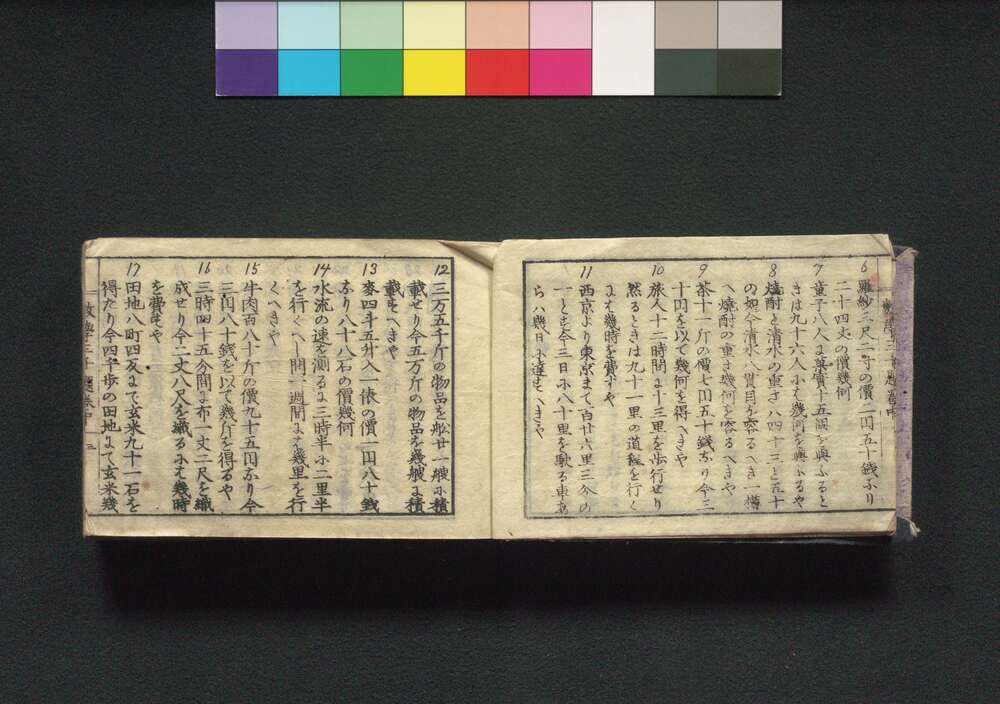 6 羅紗三尺二寸の價二円五十銭なり
二十四丈の價幾何
7 童子八人に菓實十五個を與ふると
きは九十六人には幾何を與ふるや
8 焼酎と清水の重さハ四十三と五十
の如今清水八貫目を容るへき一樽
へ焼酎の重さ幾何を容るへきや
9 茶十一斤の價七円五十銭なり今三
十円を以て幾何を得へきや
10 旅人十二時間に十三里を歩行せり
然るときは九十一里の道程を行く
には幾時を費すや
11 西京より東京まて百廿六里三分の
一と云今三日に八十里を馳る車な
らハ幾日に達すへきや
12 三万五千斤の物品を舩廿一艘に積
載せり今五万斤の物品を幾艘に積
載すへきや
13 麥四斗五升入一俵の價一円八十銭
なり八十八石の價幾何
14 水流の速を測るに三時半に二里半
を行くへし問一週間には幾里を行
くへきや
15 牛肉百八十斤の價九十五円なり今
三円八十銭を以て幾斤を得るや
16 三時四十五分間に布一丈二尺を織
成せり今二丈八尺を織るには幾時
を費すや
17 田地八町四反にて玄米九十一石を
得たり今四千歩の田地にて玄米幾